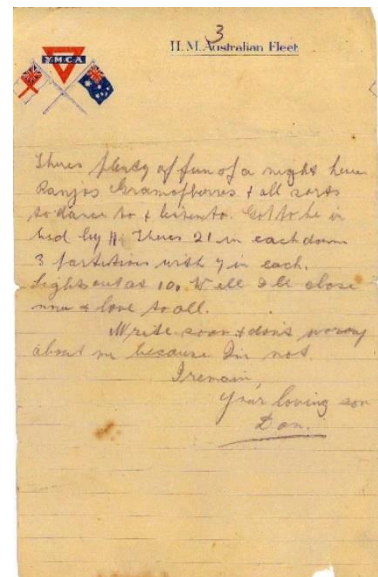 3
Y.M.C.A
H.M. Australian Fleet
Theres plenty of fun of a night here
Banjos Gramofbones & all sorts
to dance to & listen to. Got to be in
bed by 9. Theres 21 in each dorm
3 partitions with 7 in each.
Lights out at 10. Well Ill close
now & love to all.
Write soon & dont worry
about me because Im not
I remain,
Your loving son
Don.